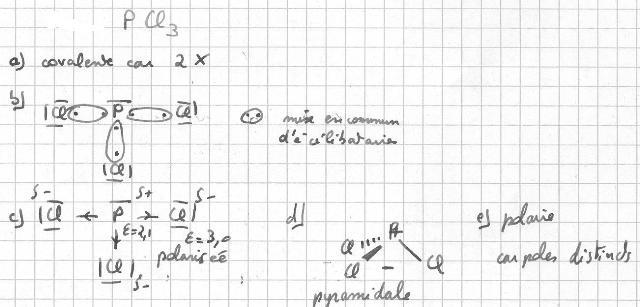 PCl3
a) covalente car 2 X
b) |Cl P Cl|
mise en commun
d'é célibataires
|Cl|
c) δ- |Cl ← P δ+ → Cl| δ-
ε=2,1 ε=3,0
polarisée
|Cl| δ-
d) P
Cl Cl Cl
pyramidale
e) polaire
car poles distincts